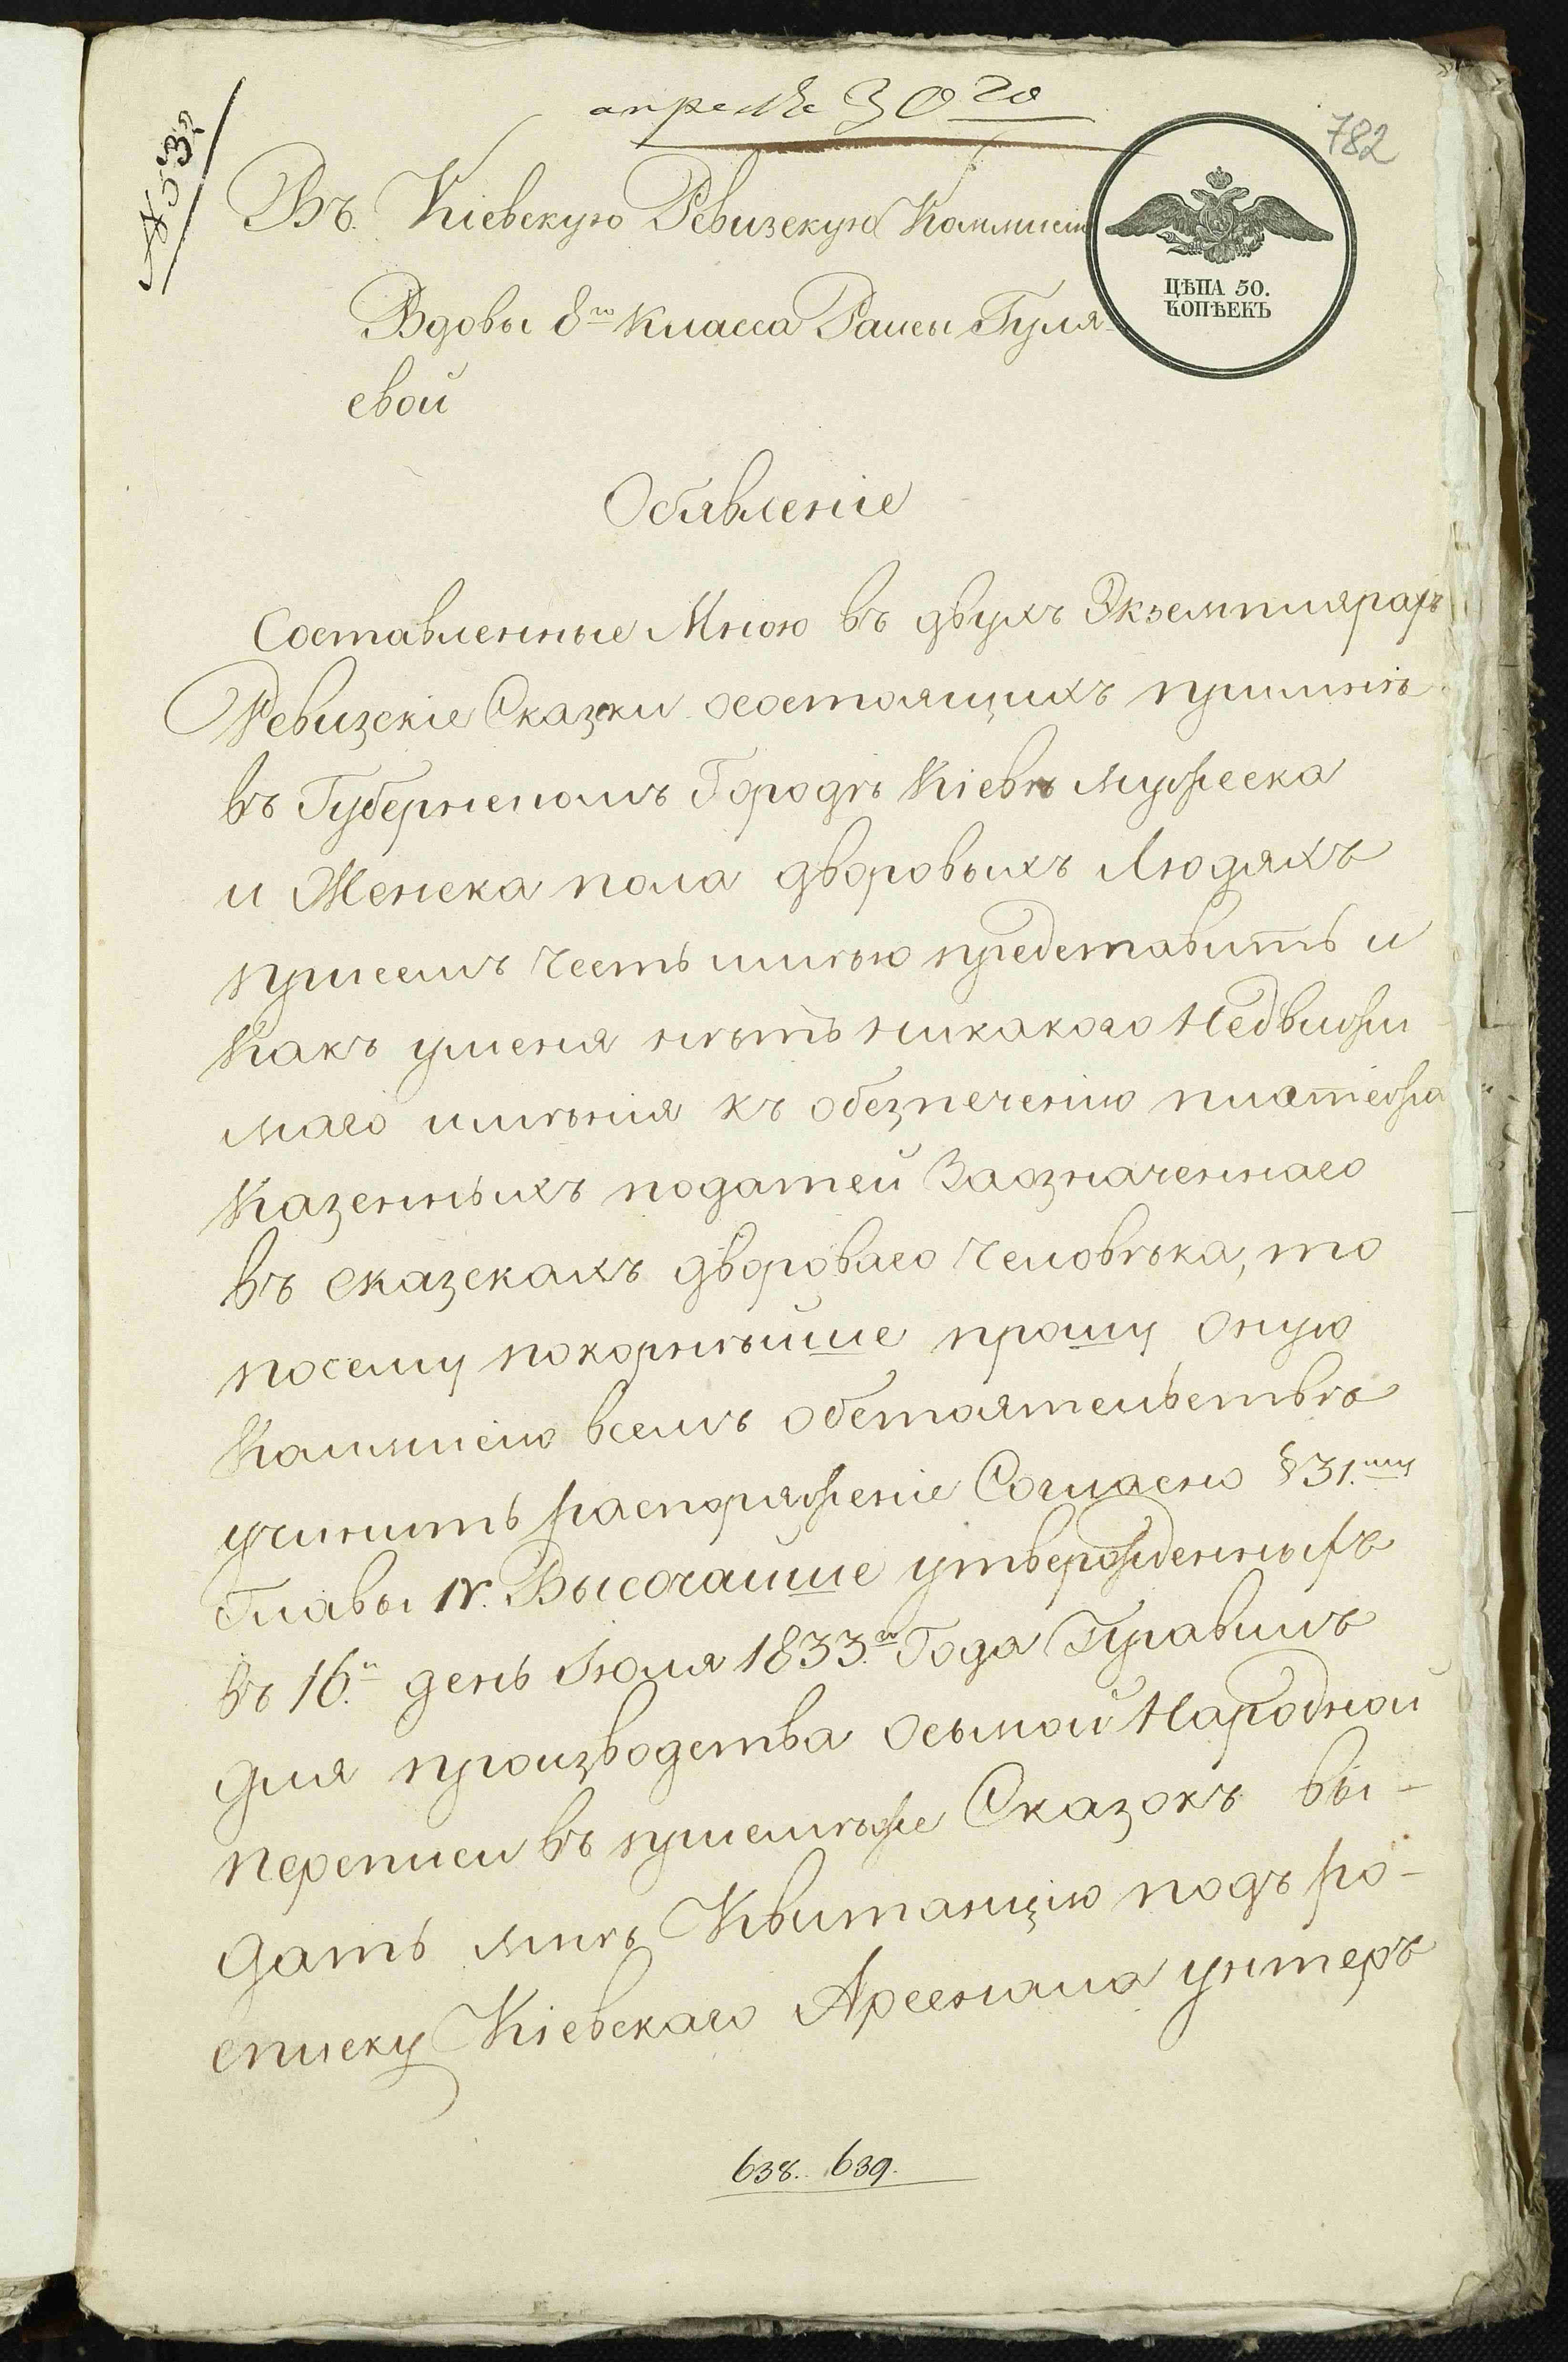 апреля 30го
782
№ 532
Въ Кіевскую Ревизскую Коммисію
ЦѢНА 50.
КОПѢЕКЪ
Вдовы 8го класса Раисы Гуля-
евой
Обявленіе
Составленные Мною въ двухъ Экземплярахъ
Ревизскіе Сказки осостоящихъ примнѣ
въ Губернскомъ Городѣ Кіевѣ мужеска
и Женска пола дворовыхъ Людяхъ
присемъ честь имѣю представить и
Какъ уменя нѣтъ никакого Недвижи-
маго имѣнія къ обезпеченію платежа
Казенныхъ податей Заозначеннаго
въ сказскахъ двороваго человѣка, то
посему покорнѣйше прошу оную
Коммисію всемъ обстоятельствѣ
учинить распоряженіе Согласно § 31.му
Главы IV. Высочайше утвержденныхъ
въ 16.й день Іюля 1833.го Года Правилъ
для производства осьмой Народной
переписи въ приемѣже Сказокъ вы-
дать мнѣ Квитанцію подъ ро-
списку Кіевскаго Арсенала унтеръ
638. 639.